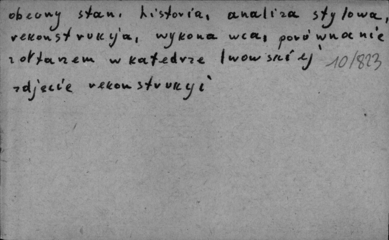 obecny stan, historia, analiza stylowa,
rekonstrukcja, wykonawca, porównanie
z ołtarzem w katedrze lwowskiej
10/823
zdjęcie rekonstrukcji